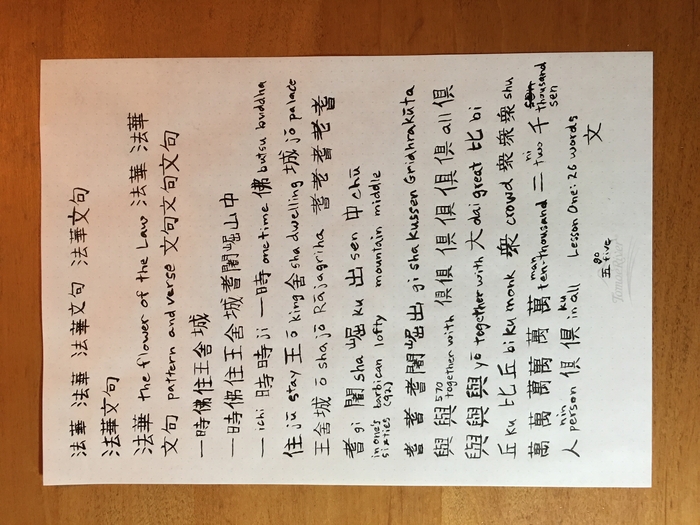 法華 法華 法華文句 法華文句
法華文句
法華 the flower of the Law 法華 法華
文句 pattern and verse 文句文句文句
一時佛住王舍城
一時佛住王舍城耆闍崛山中
一 ichi 時時 ji 一時 one time 佛 butsu buddha
住 jū stay 王 ō king 舍 sha dwelling 城 jō palace
王舍城 ō sha jō Rājagriha 耆耆耆老耆
耆 gi 闍 sha 崛 ku 出 sen 中 chū
in one's sixties (92) barbican lofty mountain middle
耆 耆 耆闍崛出 gi sha kussen Gridhrakūta
與與 570 together with 俱俱 俱俱俱俱 all 俱
與與與 yō together with 大 dai great 比 bi
丘 ku 比丘 biku monk 衆 crowd 衆衆衆 shu
萬 萬 萬萬 萬 萬 man ten-thousand 二 ni two 千 thousand sen
人 nin person 俱 俱 ku in all Lesson One: 26 words
五 go five 文